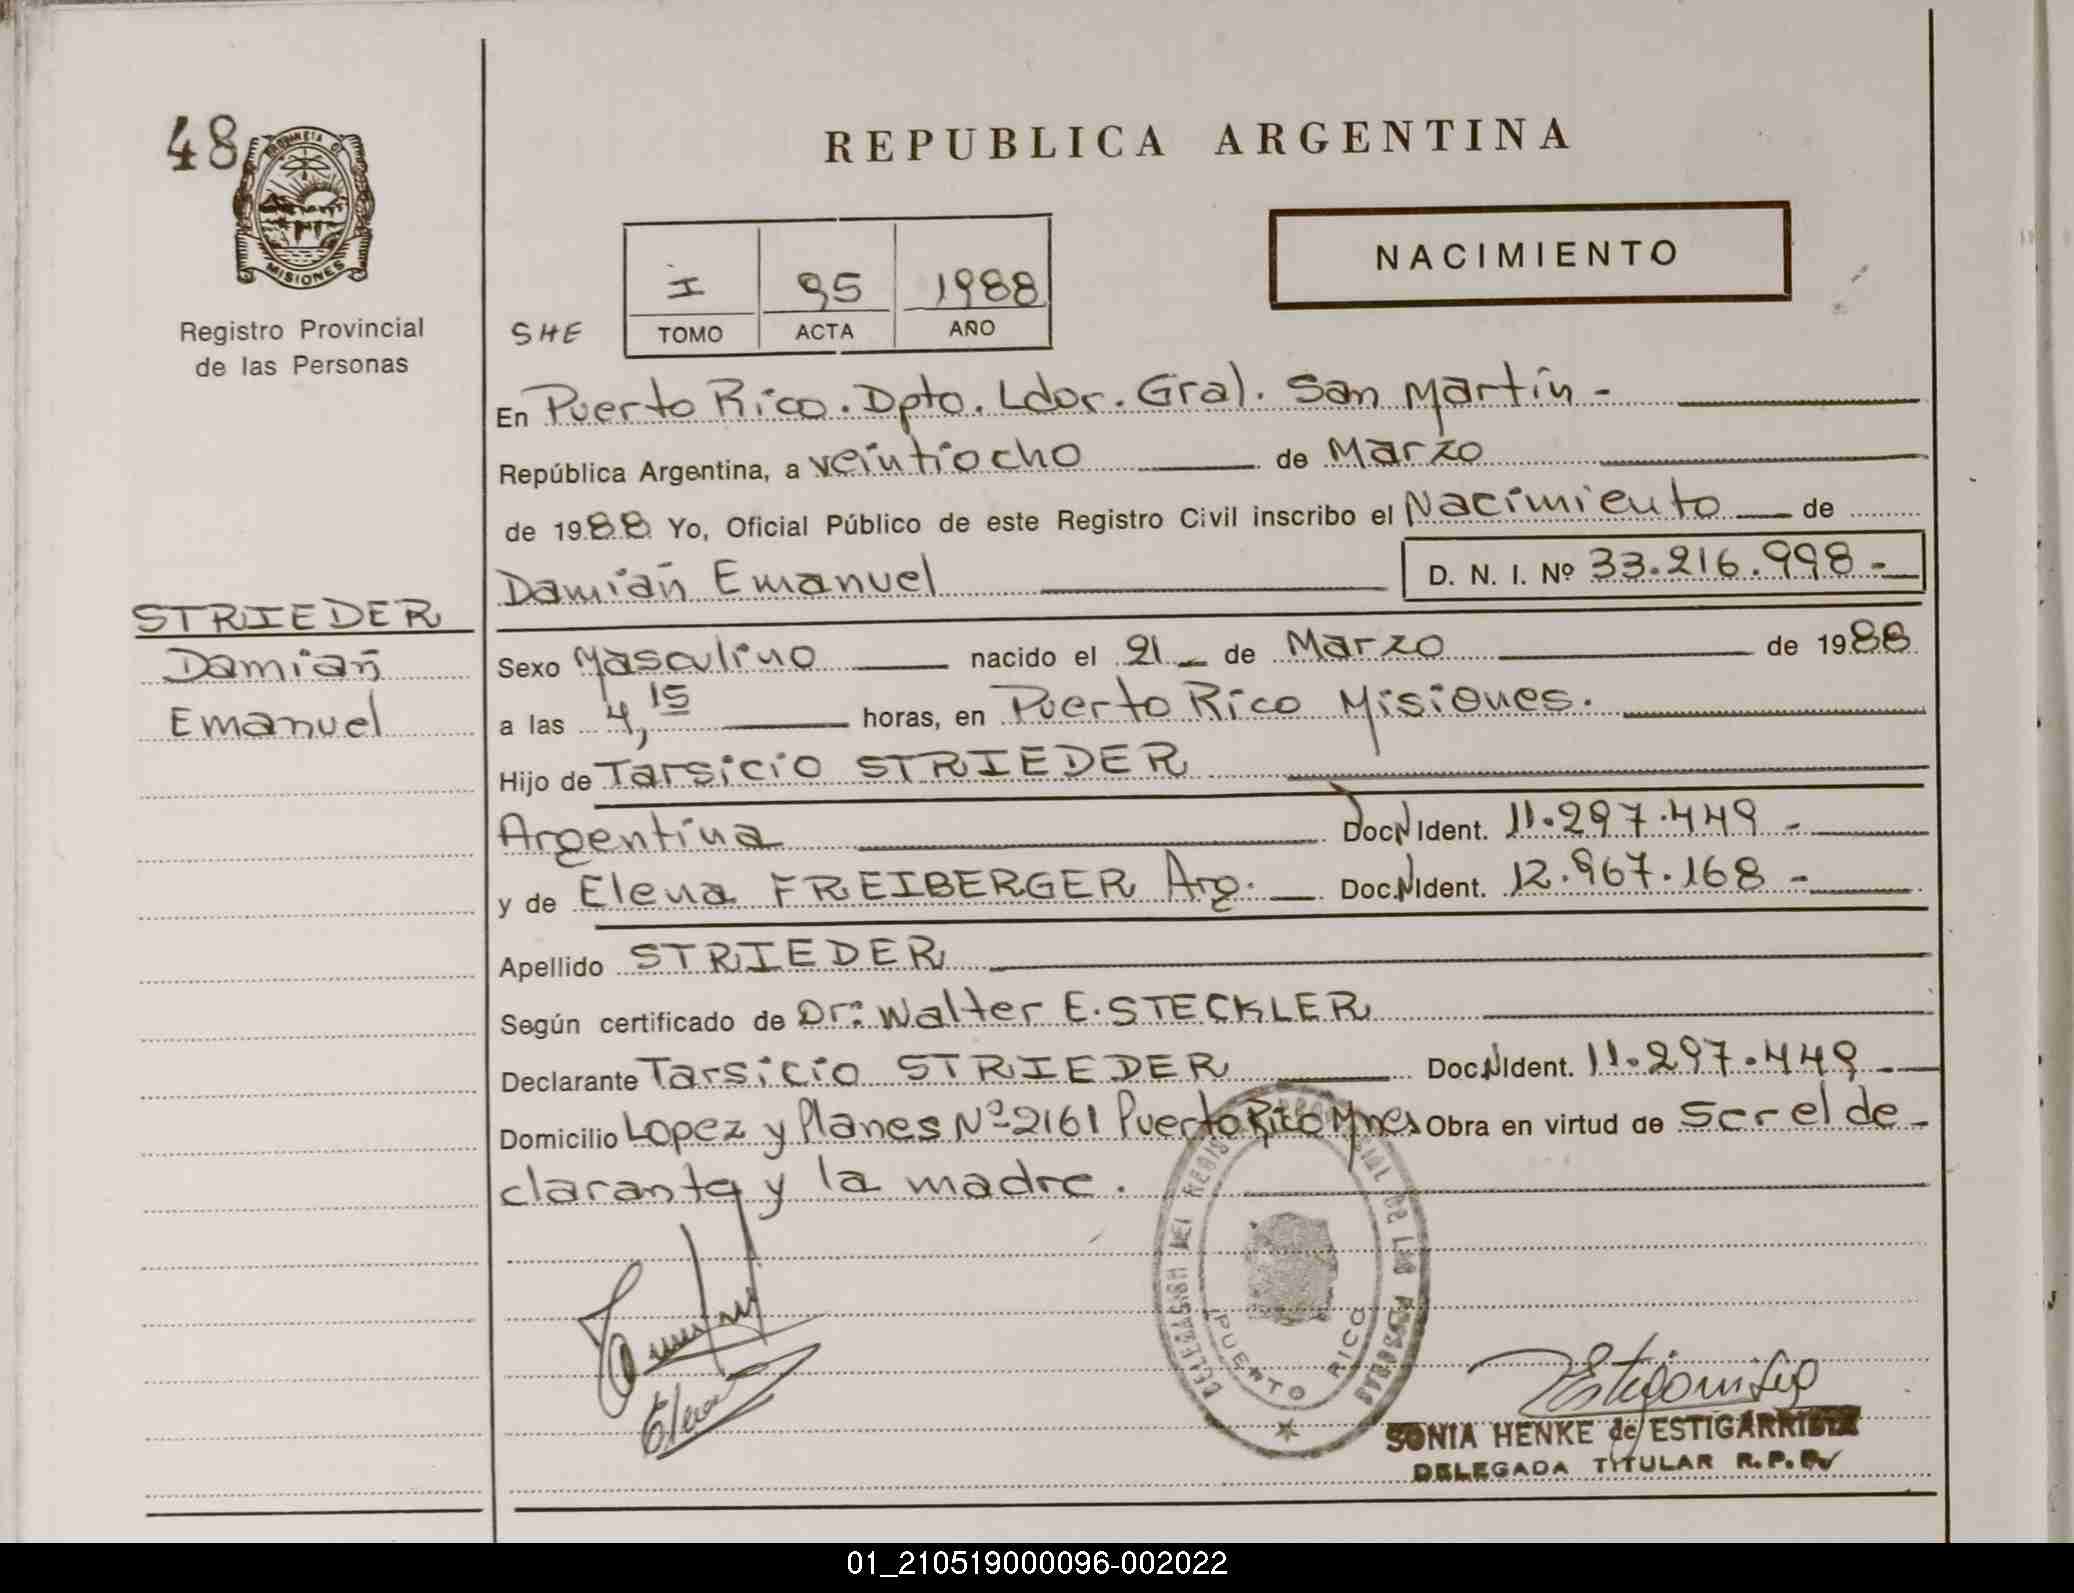 48
MISIONES
Registro Provincial
de las Personas
REPUBLICA ARGENTINA
NACIMIENTO
I 95 1988
SHE TOMO ACTA AÑO
En Puerto Rico. Dpto. Ldor. Gral. San Martín -
República Argentina, a veintiocho de Marzo
de 1988 Yo, Oficial Público de este Registro Civil inscribo el Nacimiento de
Damián Emanuel D. N. I. Nº 33.216.998-
STRIEDER
Damián
Emanuel
Sexo Masculino nacido el 21 de Marzo de 1988
a las 4,15 horas, en Puerto Rico Misiones.
Hijo de Tarsicio STRIEDER
Argentina Doc. N Ident. 11.297.449-
y de Elena FREIBERGER Arg. Doc. N Ident. 12.967.168-
Apellido STRIEDER
Según certificado de Dr: Walter E. STECKLER
Declarante Tarsicio STRIEDER Doc. N Ident. 11.297.449
Domicilio Lopez y Planes Nº 2161 Puerto Rico Mnes Obra en virtud de Scr el de-
clarante y la madre.
DELEGACION DEL REGISTRO PROVINCIAL DE LAS PERSONAS
PUERTO RICO
Elena
SONIA HENKE de ESTIGARRIBIA
DELEGADA TITULAR R.P.P.
01_210519000096-002022